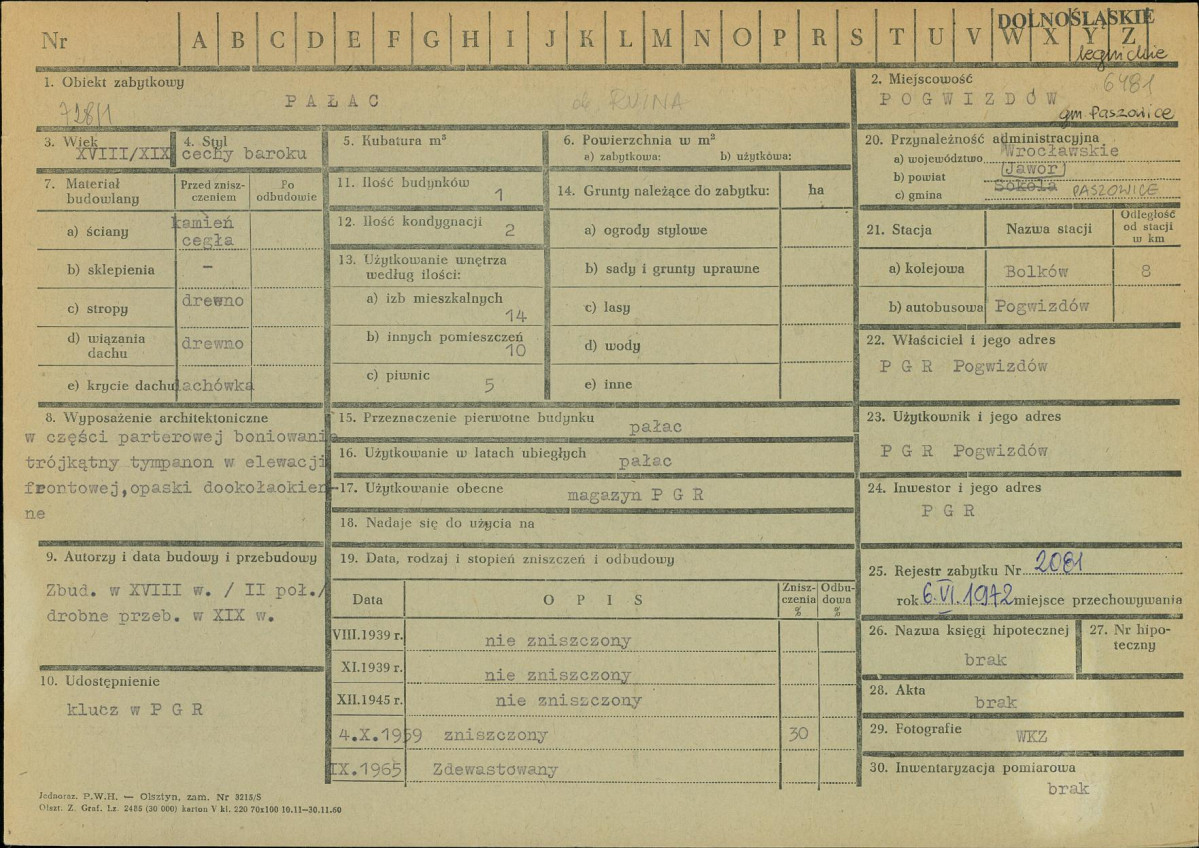 DOLNOŚLĄSKIE
Nr A B C D E F G H I J K L M N O P R S T U V W X Y Z
legnickie
1. Obiekt zabytkowy
PAŁAC
ob. RUINA
728/1
2. Miejscowość
6481
POGWIZDÓW
gm. Paszowice
3. Wiek
XVIII/XIX
4. Styl
cechy baroku
5. Kubatura m³
6. Powierzchnia w m²
a) zabytkowa: b) użytkowa:
20. Przynależność administracyjna
a) województwo Wrocławskie
b) powiat Jawor
c) gmina Sokola PASZOWICE
7. Materiał budowlany
Przed zniszczeniem
Po odbudowie
a) ściany kamień
cegła
b) sklepienia –
c) stropy drewno
d) wiązania dachu drewno
e) krycie dachu dachówka
11. Ilość budynków 1
12. Ilość kondygnacji 2
13. Użytkowanie wnętrza
według ilości:
a) izb mieszkalnych 14
b) innych pomieszczeń 10
c) piwnic 5
14. Grunty należące do zabytku: ha
a) ogrody stylowe
b) sady i grunty uprawne
c) lasy
d) wody
e) inne
21. Stacja Nazwa stacji Odległość od stacji w km
a) kolejowa Bolków 8
b) autobusowa Pogwizdów
22. Właściciel i jego adres
P G R Pogwizdów
8. Wyposażenie architektoniczne
w części parterowej boniowanie
trójkątny tympanon w elewacji
frontowej,opaski dookołaokien-
ne
15. Przeznaczenie pierwotne budynku
pałac
16. Użytkowanie w latach ubiegłych
pałac
17. Użytkowanie obecne
magazyn P G R
18. Nadaje się do użycia na
23. Użytkownik i jego adres
P G R Pogwizdów
24. Inwestor i jego adres
P G R
9. Autorzy i data budowy i przebudowy
Zbud. w XVIII w. / II poł./
drobne przeb. w XIX w.
10. Udostępnienie
klucz w P G R
19. Data, rodzaj i stopień zniszczeń i odbudowy
Data O P I S Zniszczenia % Odbudowa %
VIII.1939 r. nie zniszczony
XI.1939 r. nie zniszczony
XII.1945 r. nie zniszczony
4.X.1959 zniszczony 30
IX.1965 Zdewastowany
25. Rejestr zabytku Nr 2081
rok 6.VI.1972 miejsce przechowywania
26. Nazwa księgi hipotecznej
brak
27. Nr hipoteczny
28. Akta
brak
29. Fotografie
WKZ
30. Inwentaryzacja pomiarowa
brak
Jednoraz. P.W.H. — Olsztyn, zam. Nr 3215/S
Olszt. Z. Graf. Lz. 2485 (30 000) karton V kl. 220 70x100 10.11—30.11.60